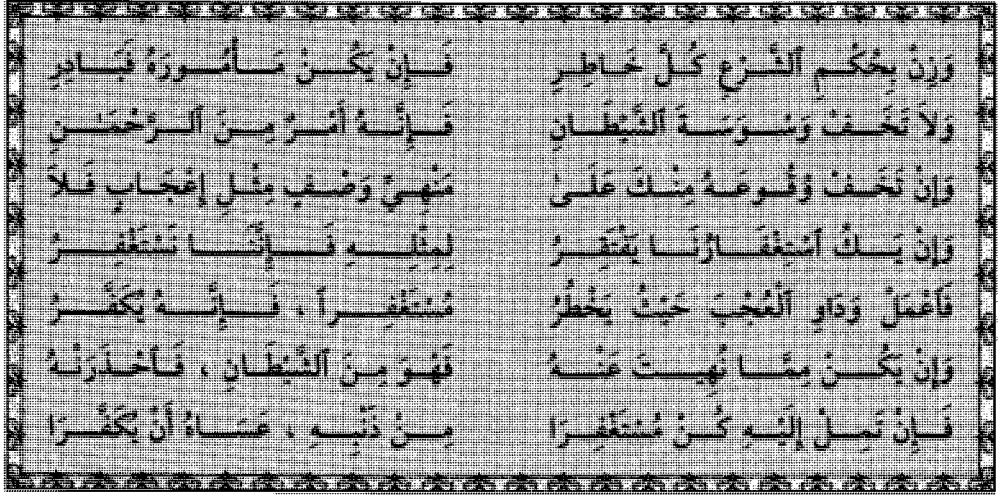 وَزِنْ بِحُكْمِ ٱلشَّرْعِ كُلَّ خَاطِرِ فَإِنْ يَكُنْ مَأْمُورَهُ فَبَادِرِ
وَلاَ تَخَفْ وَسْوَسَةَ ٱلشَّيْطَانِ فَإِنَّهُ أَمْرٌ مِنَ ٱلرَّحْمَٰنِ
وَإِنْ تَخَفْ وُقُوعَهُ مِنْكَ عَلَىٰ مَنْهِيِّ وَصْفٍ مِثْلِ إِعْجَابٍ فَلاَ
وَإِنْ يَكُ ٱسْتِغْفَارُنَا يَفْتَقِرُ لِمِثْلِهِ فَإِنَّنَا نَسْتَغْفِرُ
فَٱعْمَلْ وَدَاوِ ٱلْعُجْبَ حَيْثُ يَخْطُرُ مُسْتَغْفِراً ، فَإِنَّهُ يُكَفَّرُ
وَإِنْ يَكُنْ مِمَّا نُهِيتَ عَنْهُ فَهْوَ مِنَ ٱلشَّيْطَانِ ، فَٱحْذَرَنْهُ
فَإِنْ تَمِلْ إِلَيْهِ كُنْ مُسْتَغْفِرَا مِنْ ذَنْبِهِ ، عَسَاهُ أَنْ يُكَفَّرَا